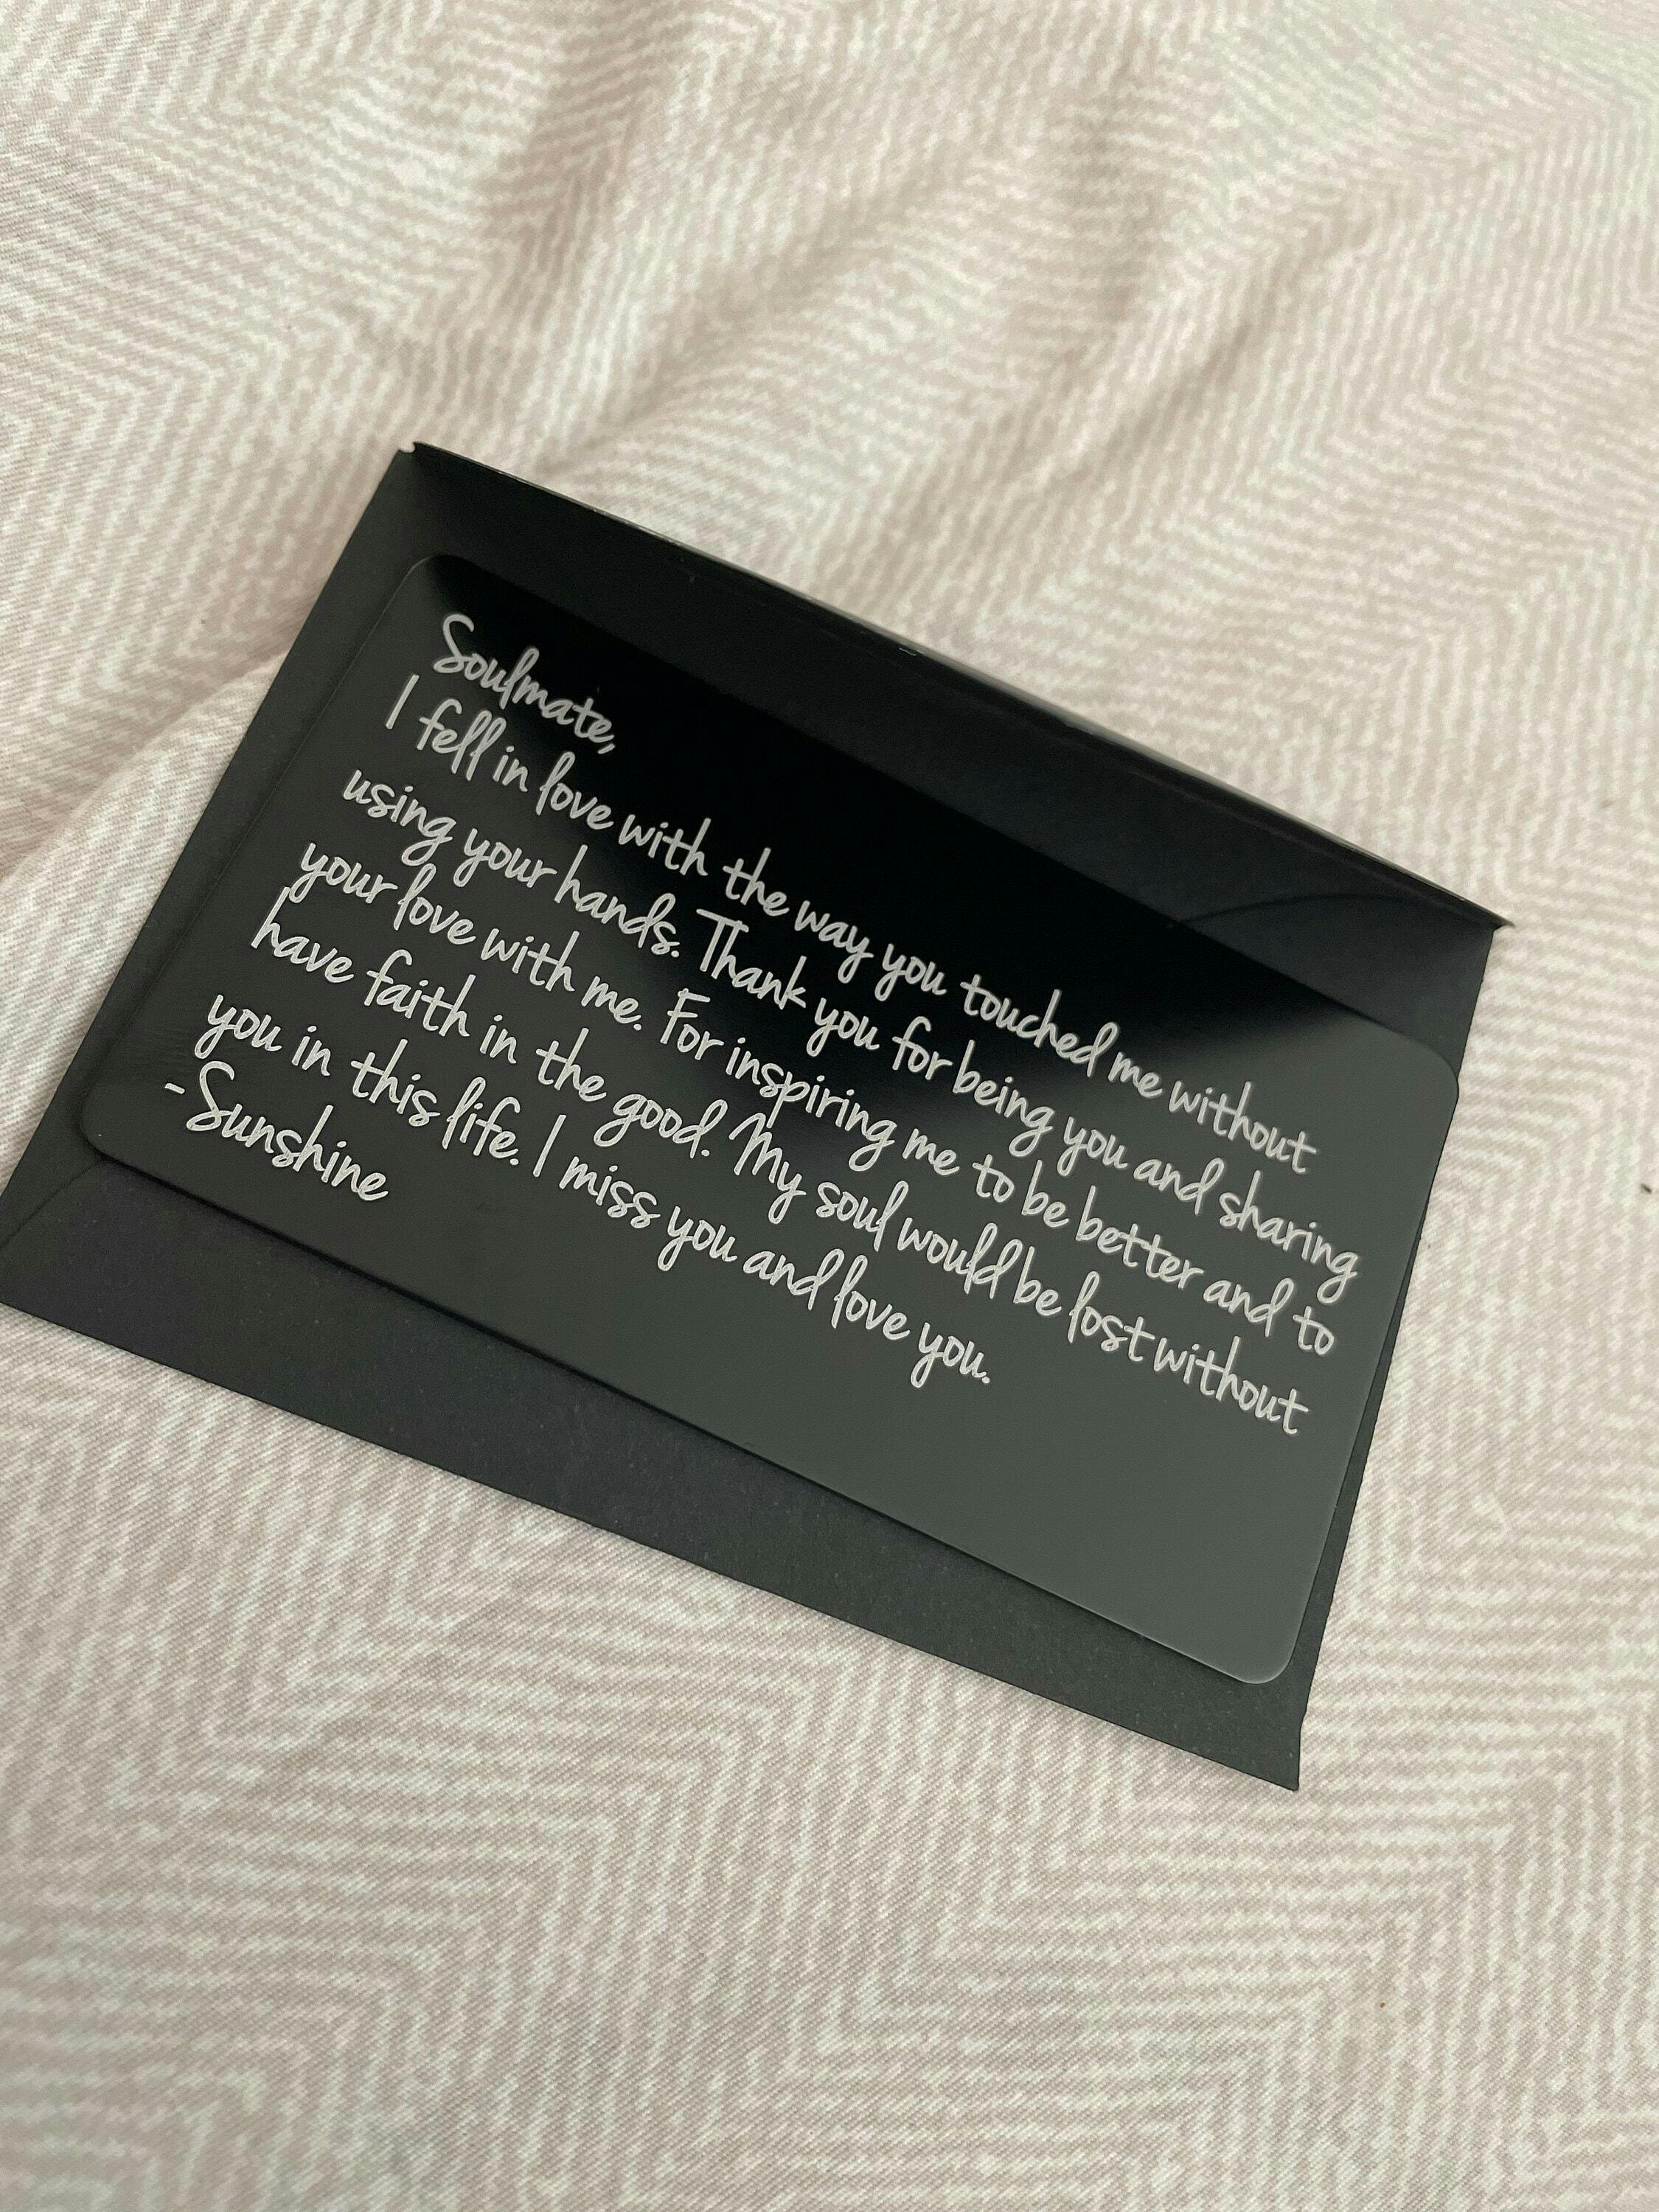 Soulmate,
I fell in love with the way you touched me without
using your hands. Thank you for being you and sharing
your love with me. For inspiring me to be better and to
have faith in the good. My soul would be lost without
you in this life. I miss you and love you.
-Sunshine